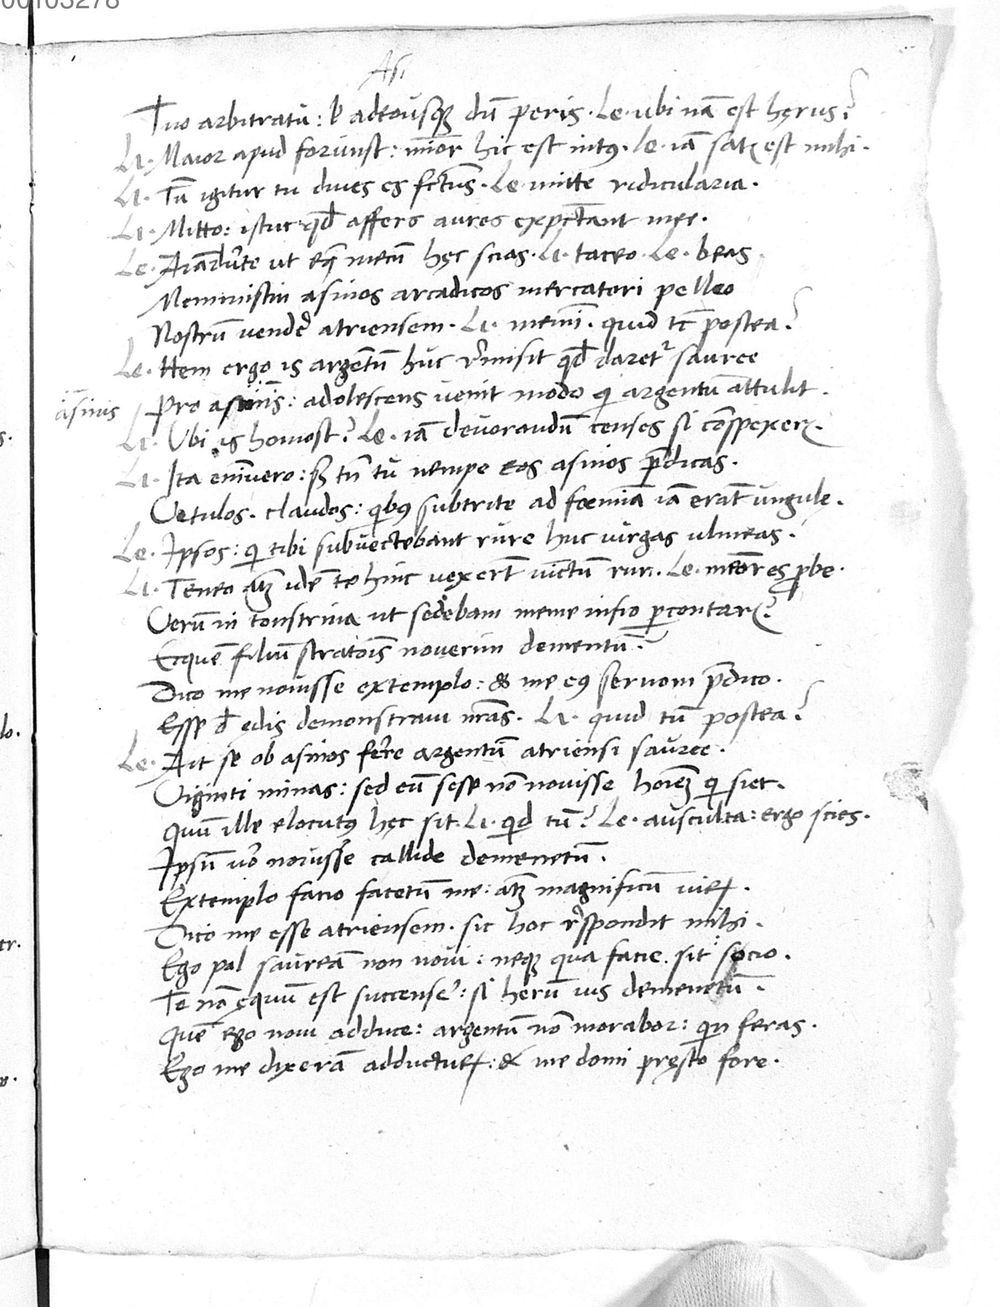 00103278
Asi
Tuo arbitratu: vl adeousq̃ dũ peris. Le. ubi nã est hęrus?
Li. Maior apud forũnst: mĩor hic est intꝰ. le. iã satis est mihi.
Li. Tũ igitur tu dives es fctũs. Le. mitte ridicularia.
Li. Mitto: istuc qđ affers aures expctãnt mee.
Le. Aĩaduẽte ut eq̃ mecũ hęc scias. Li. taceo. Le. beas.
Meministin asinos arcadicos mercatori pelleo
Nostrũ vender̃ atriensem. Li. memĩ. quid tc̃ postea?
Le. Hem ergo is argẽtũ huc r̃misit qđ daretᷣ sauree
asĩnis
Pro asinĩs: adolescens venit modo qi argentũ attulit.
Li. Ubi is homost? Le. iã devorandũ censes si cõspexerꝭ.
Li. Ita enĩvero: sꝫ tñ tũ nempe eos asinos p̃dicas.
Vetulos. claudos: qibꝰ subtrite ad fœmia iã erãt ungule.
Le. Ipsos: qi tibi subvectebant rure huc virgas ulmeas.
Li. Teneo atqꝫ idẽ te hinc vexerũt victũ rur. Le. meõres probe.
Verũ in tonstrina ut sedebam meme infio pcontarꝭ?
Ecquẽ filiũ stratoĩs noverim dementũ?
Dico me novisse extemplo: & me eiꝰ servom p̃dico.
Esse & edis demonstravi nr̃as. Li. quid tũ postea?
Le. Ait se ob asinos fer̃e argentũ atriensi sauree.
Viginti minas: sed eũ sese nõ novisse hoĩeꝫ qi siet.
Quũ ille elocutꝰ hęc sit. Li. qid tũ? Le. ausculta: ergo scies.
Ipsũ vo novisse callide demenetũ.
Extemplo facio facetũ me: atqꝫ magnificũ virꝝ.
Dico me esse atriensem. sic hoc r̃spondit mihi.
Ego pal saureã non novi: neqꝫ qua facie sit scio.
Te nõ ęquũ est succensẽ: si herũ vis demenetũ.
Quẽ ego novi adduce: argentũ nõ morabor: qin feras.
Ego me dixerã adducturꝝ: & me domi pręsto fore.